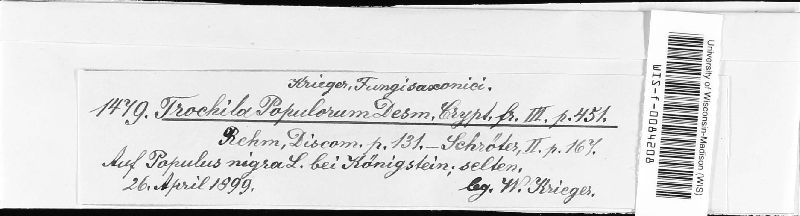 Krieger, Fungi saxonici.
1479. Trochila Populorum Desm, Crypt. fr. III. p. 451.
Rehm, Discom. p. 131. – Schröter, II. p. 167.
Auf Populus nigra L. bei Königstein; selten.
26. April 1899. leg. W. Krieger.
University of Wisconsin-Madison (WIS)
WIS-f-0084208